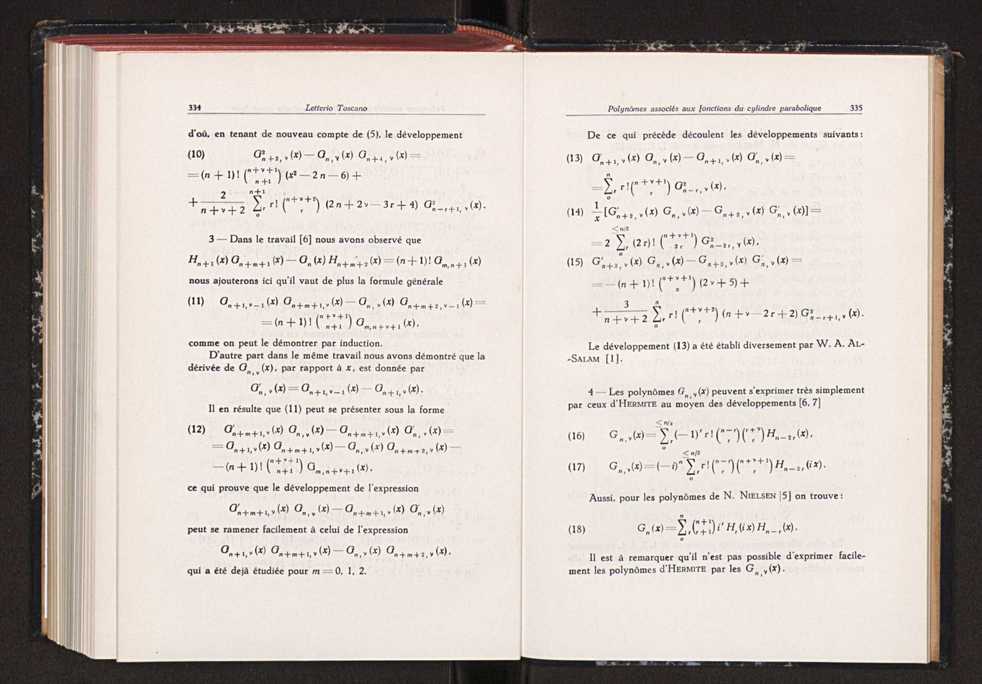 334 Letterio Toscano
d'où, en tenant de nouveau compte de (5), le développement
(10) G²ₙ₊₂,ᵥ(x) — Gₙ,ᵥ(x) Gₙ₊₄,ᵥ(x) =
= (n + 1)! (n+ν+1 / n+1) (x² — 2n — 6) +
+ 2/(n+ν+2) Σᵣ₀ⁿ⁺¹ r! (n+ν+2 / r) (2n + 2ν — 3r + 4) G²ₙ₋ᵣ₊₁,ᵥ(x).
3 — Dans le travail [6] nous avons observé que
Hₙ₊₁(x) Gₙ₊ₘ₊₁(x) — Gₙ(x) Hₙ₊ₘ₊₂(x) = (n+1)! Gₘ,ₙ₊₁(x)
nous ajouterons ici qu'il vaut de plus la formule générale
(11) Gₙ₊₁,ᵥ₋₁(x) Gₙ₊ₘ₊₁,ᵥ(x) — Gₙ,ᵥ(x) Gₙ₊ₘ₊₂,ᵥ₋₁(x) =
= (n + 1)! (n+ν+1 / n+1) Gₘ,ₙ₊ᵥ₊₁(x),
comme on peut le démontrer par induction.
D'autre part dans le même travail nous avons démontré que la
dérivée de Gₙ,ᵥ(x), par rapport à x, est donnée par
G'ₙ,ᵥ(x) = Gₙ₊₁,ᵥ₋₁(x) — Gₙ₊₁,ᵥ(x).
Il en résulte que (11) peut se présenter sous la forme
(12) G'ₙ₊ₘ₊₁,ᵥ(x) Gₙ,ᵥ(x) — Gₙ₊ₘ₊₁,ᵥ(x) G'ₙ,ᵥ(x) =
= Gₙ₊₁,ᵥ(x) Gₙ₊ₘ₊₁,ᵥ(x) — Gₙ,ᵥ(x) Gₙ₊ₘ₊₂,ᵥ(x) —
— (n + 1)! (n+ν+1 / n+1) Gₘ,ₙ₊ᵥ₊₁(x),
ce qui prouve que le développement de l'expression
G'ₙ₊ₘ₊₁,ᵥ(x) Gₙ,ᵥ(x) — Gₙ₊ₘ₊₁,ᵥ(x) G'ₙ,ᵥ(x)
peut se ramener facilement à celui de l'expression
Gₙ₊₁,ᵥ(x) Gₙ₊ₘ₊₁,ᵥ(x) — Gₙ,ᵥ(x) Gₙ₊ₘ₊₂,ᵥ(x),
qui a été dejà étudiée pour m = 0, 1, 2.
Polynômes associés aux fonctions du cylindre parabolique 335
De ce qui précède découlent les développements suivants:
(13) G'ₙ₊₁,ᵥ(x) Gₙ,ᵥ(x) — Gₙ₊₁,ᵥ(x) G'ₙ,ᵥ(x) =
= Σᵣ₀ⁿ r! (n+ν+1 / r) G²ₙ₋ᵣ,ᵥ(x).
(14) 1/x [G'ₙ₊₂,ᵥ(x) Gₙ,ᵥ(x) — Gₙ₊₂,ᵥ(x) G'ₙ,ᵥ(x)] =
= 2 Σᵣ₀^(≤n/2) (2r)! (n+ν+1 / 2r) G²ₙ₋₂ᵣ,ᵥ(x).
(15) G'ₙ₊₃,ᵥ(x) Gₙ,ᵥ(x) — Gₙ₊₃,ᵥ(x) G'ₙ,ᵥ(x) =
= — (n + 1)! (n+ν+1 / n) (2ν + 5) +
+ 3/(n+ν+2) Σᵣ₀ⁿ r! (n+ν+2 / r) (n + ν — 2r + 2) G²ₙ₋ᵣ₊₁,ᵥ(x).
Le développement (13) a été établi diversement par W. A. AL-
-SALAM [1].
4 — Les polynômes Gₙ,ᵥ(x) peuvent s'exprimer très simplement
par ceux d'HERMITE au moyen des développements [6, 7]
(16) Gₙ,ᵥ(x) = Σᵣ₀^(≤n/2) (—1)ʳ r! (n−r / r)(r+ν / r) Hₙ₋₂ᵣ(x),
(17) Gₙ,ᵥ(x) = (—i)ⁿ Σᵣ₀^(≤n/2) r! (n−r / r)(n+ν+1 / r) Hₙ₋₂ᵣ(ix).
Aussi, pour les polynômes de N. NIELSEN [5] on trouve:
(18) Gₙ(x) = Σᵣ₀ⁿ (n+1 / r+1) iʳ Hᵣ(ix) Hₙ₋ᵣ(x).
Il est à remarquer qu'il n'est pas possible d'exprimer facile-
ment les polynômes d'HERMITE par les Gₙ,ᵥ(x).